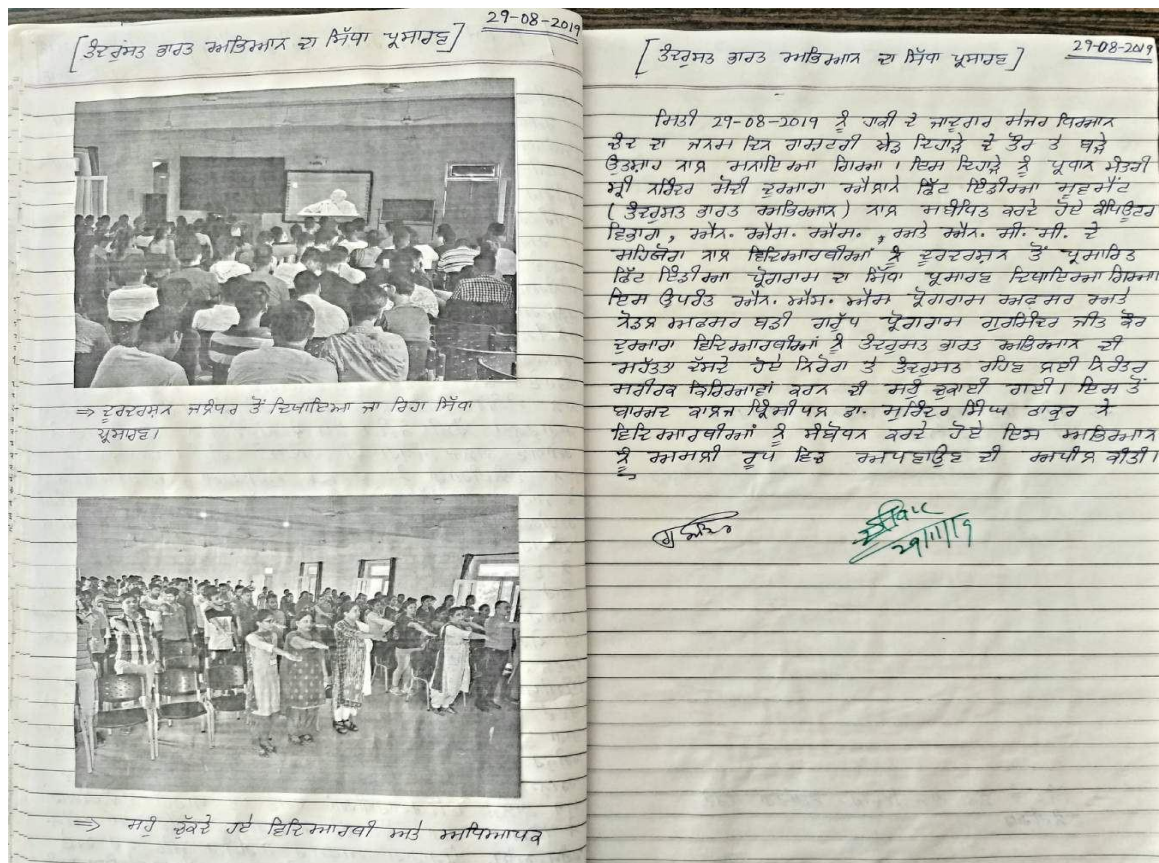 29-08-2019
[ਤੰਦਰੁਸਤ ਭਾਰਤ ਅਭਿਆਨ ਦਾ ਸਿੱਧਾ ਪ੍ਰਸਾਰਣ]
⇒ ਦੂਰਦਰਸ਼ਨ ਜਲੰਧਰ ਤੋਂ ਦਿਖਾਇਆ ਜਾ ਰਿਹਾ ਸਿੱਧਾ
ਪ੍ਰਸਾਰਣ।
⇒ ਸਹੁੰ ਚੁੱਕਦੇ ਹੋਏ ਵਿਦਿਆਰਥੀ ਅਤੇ ਅਧਿਆਪਕ
29-08-2019
[ਤੰਦਰੁਸਤ ਭਾਰਤ ਅਭਿਆਨ ਦਾ ਸਿੱਧਾ ਪ੍ਰਸਾਰਣ]
ਮਿਤੀ 29-08-2019 ਨੂੰ ਹਾਕੀ ਦੇ ਜਾਦੂਗਰ ਮੇਜਰ ਧਿਆਨ
ਚੰਦ ਦਾ ਜਨਮ ਦਿਨ ਰਾਸ਼ਟਰੀ ਖੇਡ ਦਿਹਾੜੇ ਦੇ ਤੌਰ ਤੇ ਬੜੇ
ਉਤਸ਼ਾਹ ਨਾਲ ਮਨਾਇਆ ਗਿਆ। ਇਸ ਦਿਹਾੜੇ ਨੂੰ ਪ੍ਰਧਾਨ ਮੰਤਰੀ
ਸ੍ਰੀ ਨਰਿੰਦਰ ਮੋਦੀ ਦੁਆਰਾ ਐਲਾਨੇ ਫਿੱਟ ਇੰਡੀਆ ਮੂਵਮੈਂਟ
(ਤੰਦਰੁਸਤ ਭਾਰਤ ਅਭਿਆਨ) ਨਾਲ ਸਬੰਧਿਤ ਕਰਦੇ ਹੋਏ ਕੰਪਿਊਟਰ
ਵਿਭਾਗ, ਐਨ. ਐਸ. ਐਸ., ਅਤੇ ਐਨ. ਸੀ. ਸੀ. ਦੇ
ਸਹਿਯੋਗ ਨਾਲ ਵਿਦਿਆਰਥੀਆਂ ਨੂੰ ਦੂਰਦਰਸ਼ਨ ਤੋਂ ਪ੍ਰਸਾਰਿਤ
ਫਿੱਟ ਇੰਡੀਆ ਪ੍ਰੋਗਰਾਮ ਦਾ ਸਿੱਧਾ ਪ੍ਰਸਾਰਣ ਦਿਖਾਇਆ ਗਿਆ।
ਇਸ ਉਪਰੰਤ ਐਨ. ਐਸ. ਐਸ ਪ੍ਰੋਗਰਾਮ ਅਫਸਰ ਅਤੇ
ਨੋਡਲ ਅਫਸਰ ਬਡੀ ਗਰੁੱਪ ਪ੍ਰੋਗਰਾਮ ਗੁਰਮਿੰਦਰ ਜੀਤ ਕੌਰ
ਦੁਆਰਾ ਵਿਦਿਆਰਥੀਆਂ ਨੂੰ ਤੰਦਰੁਸਤ ਭਾਰਤ ਅਭਿਆਨ ਦੀ
ਮਹੱਤਤਾ ਦੱਸਦੇ ਹੋਏ ਨਿਰੋਗ ਤੇ ਤੰਦਰੁਸਤ ਰਹਿਣ ਲਈ ਨਿਰੰਤਰ
ਸਰੀਰਕ ਕਿਰਿਆਵਾਂ ਕਰਨ ਦੀ ਸਹੁੰ ਚੁਕਾਈ ਗਈ। ਇਸ ਤੋਂ
ਬਾਅਦ ਕਾਲਜ ਪ੍ਰਿੰਸੀਪਲ ਡਾ. ਸੁਰਿੰਦਰ ਸਿੰਘ ਠਾਕੁਰ ਨੇ
ਵਿਦਿਆਰਥੀਆਂ ਨੂੰ ਸੰਬੋਧਨ ਕਰਦੇ ਹੋਏ ਇਸ ਅਭਿਆਨ
ਨੂੰ ਅਸਲੀ ਰੂਪ ਵਿਚ ਅਪਣਾਉਣ ਦੀ ਅਪੀਲ ਕੀਤੀ।
29/11/19